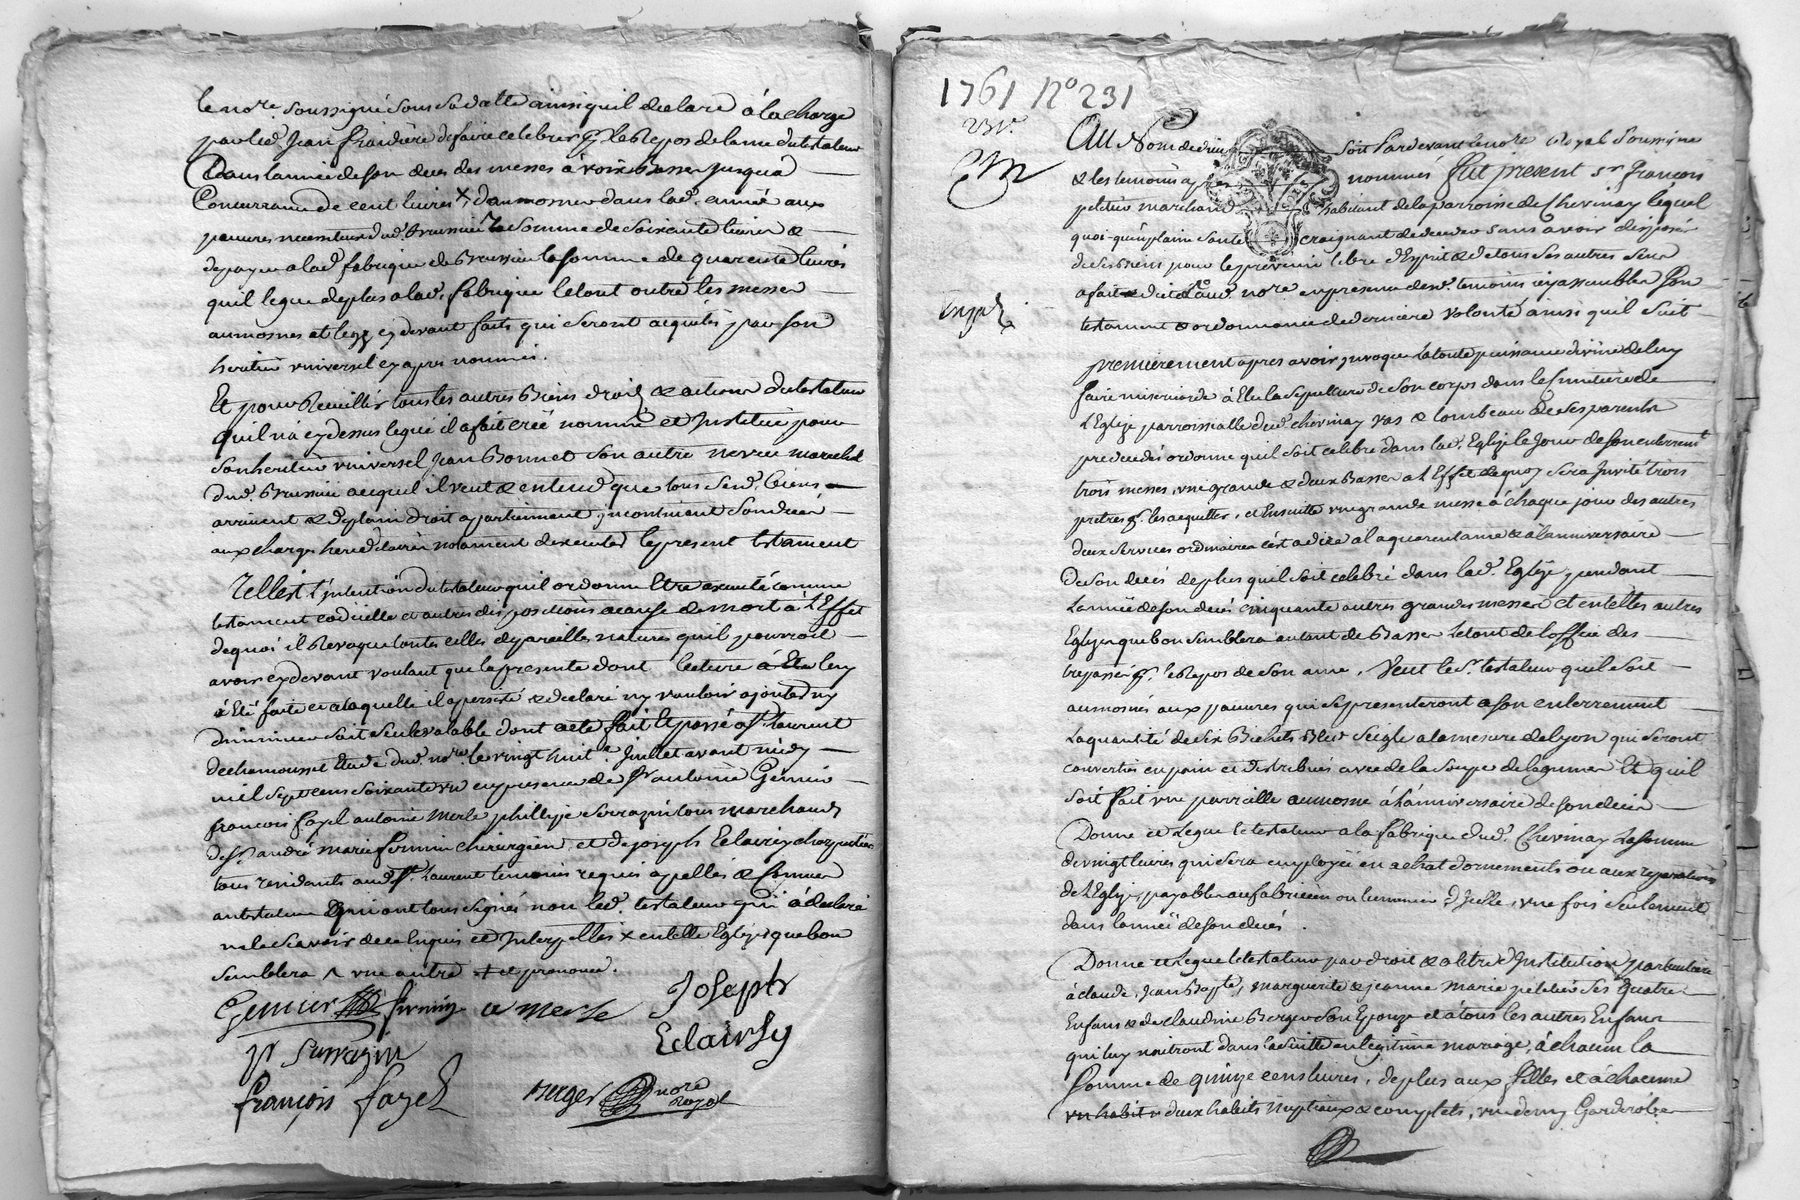 le nore. soussigné sous sa datte ainsi quil declare á la charge
par led. Jean de faire celebrer pr. le Repos de lame du testateur
Dans lannée de son deces des messes á voix Basse jusqua
Concurrance de cent livres x, daumosner dans lad. année aux
pauvres necessiteux dud. Brussieu La somme de soixante livres &
de payer a lad. fabrique de Brussieu la somme de quarente livres
quil legue de plus a lad. fabrique le tout outre les messes
aumosnes et legs cy devant faits qui seront acquités par son
heritier universel cy apres nommé.
Et pour Recuillir tous les autres Biens droits & actions du testateur
quil n'a cy dessus legué il a fait créé nommé et Institué pour
son heritier universel Jean Bonnet son autre neveu marechal
dud. Brussieu auquel il veut & entend que tous sesd. biens
arrivent & de plain droit appartiennent incontinent son deces
aux charges hereditaires notament dexecuter le present testament
Telle est l'jntention du testateur quil ordonne Etre executé comme
testament codicille et autres dispositions a cause de mort á l'Effet
de quoi il Revoque toutes celles de pareilles natures quil pourroit
avoir cy devant voulant que la presente dont lecture á Eté luy
á Eté faite et a laquelle il a persisté & declaré ny vouloir ajouter ny
diminuer soit seule valable dont acte fait Et passé a St. Laurent
de chamousset Etude dud. nore. le vingt huit e. Juillet avant midy
mil sept cens soixante un en presence de Sr. antoine Genier
francois fayel antoine Merle phillipe Sarrazin tous marchands
de Sr. andré marie fermin chirurgien et de joseph Eclairsy charpentier
tous residants aud. St. Laurent temoins requis appellés &
au testateur qui ont tous signés non led. testateur qui á declaré
ne le scavoir de ce Enquis et Interpellé x en telle Eglise que bon
semblera une autre et prenom.
Genier fermin a Merle Joseph
Eclairsy
ph Sarrazin
françois fayel Berger nore
royal
1761 No 231
231e.
Au Nom de dieu soit Pardevant le nore Royal Soussigne
& les temoins apres nommés fut present sr. françois
peletier marchand habitant de la parroisse de Chevinay lequel
quoi qu'en plaine santé craignant de deceder sans avoir disposé
de ses Biens pour le present libre d'Esprit & de tous ses autres sens
a fait & dicté aud. nore. en presence desd. temoins icy assemblés son
testament & ordonnance de derniere volonté ainsi quil suit
Expd.
premierement apres avoir jnvoqué la toute puissance divine de luy
faire misericorde á Elu la sepulture de son corps dans le cimetière de
l'Eglise parroissialle dud. chevinay vas & tombeau de ses parents
predecedés ordonne qu'il soit celebre dans lad. Eglise le jour de son enterremt
trois messes, une grande & deux Basses a l'Effet de quoy sera Invité trois
pretres pr. les acquitter, et Ensuitte une grande messe á chaque jour des autres
deux services ordinaires c'est a dire a la quarentaine & a l'anniversaire
de son deces de plus quil soit celebré dans lad. Eglise pendant
Lannée de son decés cinquante autres grandes messes et en telles autres
Eglises que bon semblera autant de Basses le tout de loffice des
trepassés pr. le Repos de son ame, Veut le Sr. testateur quil soit
aumosné aux pauvres qui se presenteront a son enterrement
la quantité de six Bichets Bled Seigle a la mesure de lyon qui seront
convertis en pain et distribués avec de la soupe de legumes Et quil
soit fait une pareille aumosne á l'anniversaire de son deces
Donne et Legue le testateur a la fabrique dud. Chevinay la somme
de vingt livres qui sera employée en achat dornements ou aux reparations
de l'Eglise, payable au fabricien ou luminier d'Icelle, une fois seulement
dans l'année de son decés.
Donne et Legue le testateur par droit & a titre d'Institution particuliere
á claude, Jean Bapte, marguerite & jeanne marie peletier ses quatre
Enfans & de claudine Berger son Epouze et á tous les autres Enfans
qui luy naitront dans la suitte en legitime mariage, á chacun la
somme de quinze cens livres, de plus aux filles et á chacune
un habit deux habits nuptiaux & complets, un demy Garderobe